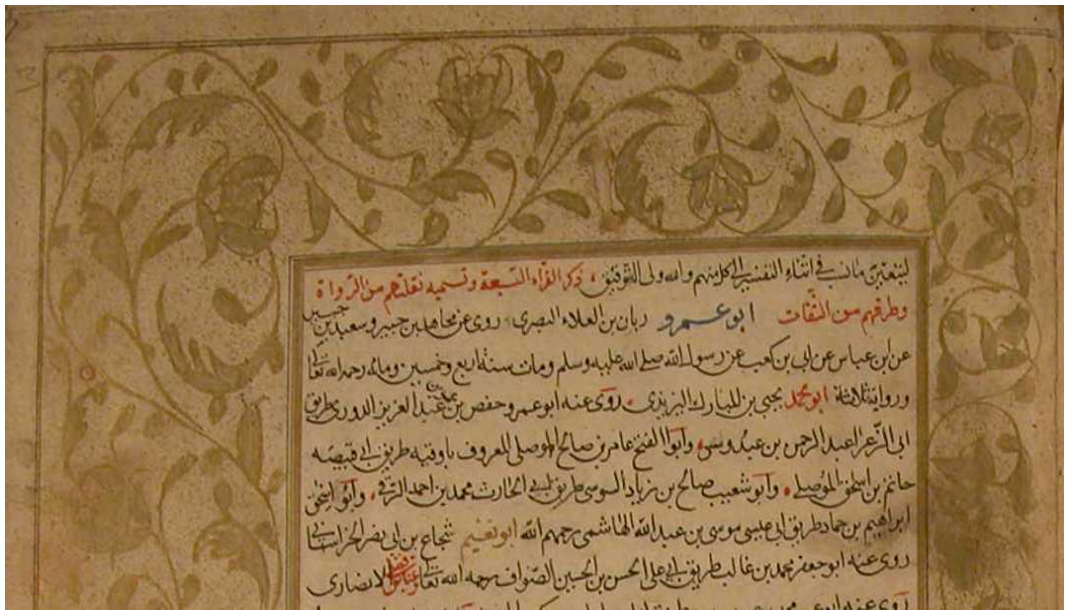 ليتعين ما ياتي في اثناء التفسير الى كل منهم والله ولي التوفيق ، ذكر القراء السبعة وتسمية نقلتهم من الرواة
وطرقهم من الثقات ابو عمرو زبان بن العلاء البصري روى عن مجاهد بن جبير وسعيد بن جبير
عن ابن عباس عن ابي بن كعب عن رسول الله صلى الله عليه وسلم ومات سنة اربع وخمسين ومائة رحمه الله تعالى
ورواية ثلاثة ابو محمد يحيى بن المبارك اليزيدي ، روى عنه ابو عمر وحفص بن عبد العزيز الدوري طريق
ابي الزعراء عبد الرحمن بن عبدوس ، وابو الفتح عامر بن صالح الموصلي المعروف باوقية طريق ابي قبيصه
حاتم بن اسحق الموصلي ، وابو شعيب صالح بن زياد السوسي طريق ابي الحارث محمد بن احمد الرقي ، وابو اسحق
ابراهيم بن حماد طريق ابي عيسى موسى بن عبد الله الهاشمي رحمهم الله ابو نعيم شجاع بن ابي نصر الخراساني
روى عنه ابو جعفر محمد بن غالب طريق ابي علي الحسن بن الحسين الصواف رحمه الله تعالى الانصاري
روى عنه ابو